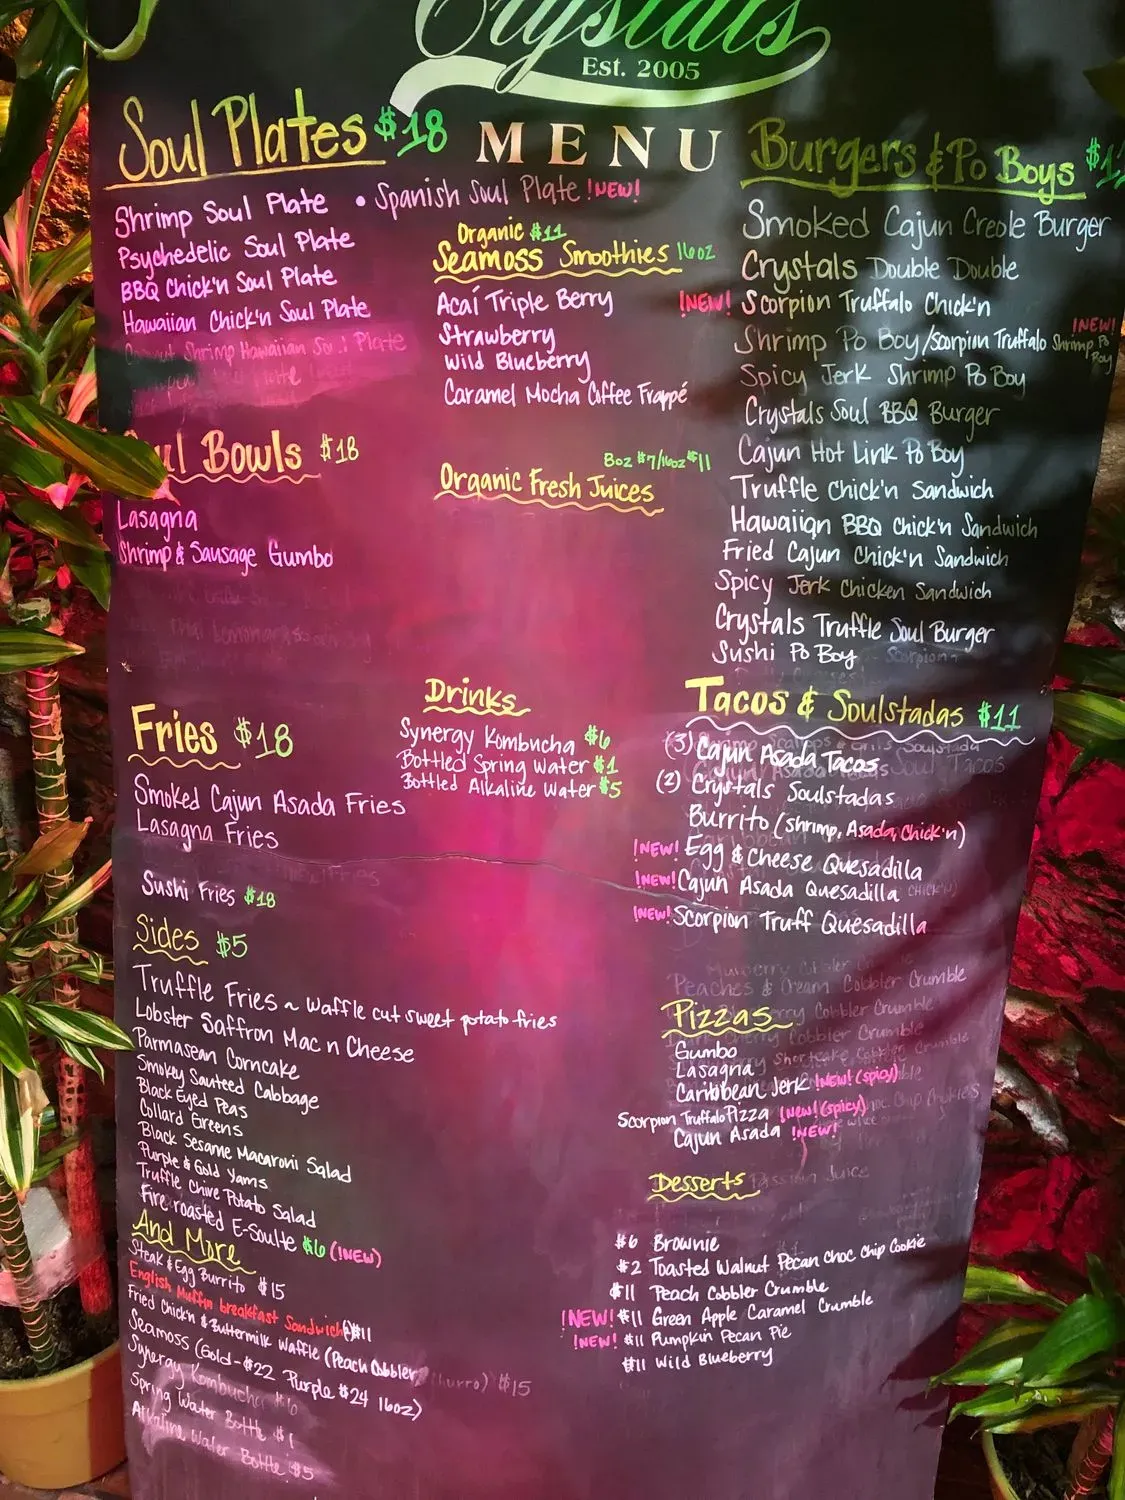 Crystals
Est. 2005
MENU
Soul Plates $18
Shrimp Soul Plate
• Spanish Soul Plate !NEW!
Psychedelic Soul Plate
BBQ Chick'n Soul Plate
Hawaiian Chick'n Soul Plate
Shrimp Hawaiian Soul Plate
Soul Bowls $18
Lasagna
Shrimp & Sausage Gumbo
Fries $18
Smoked Cajun Asada Fries
Lasagna Fries
Sushi Fries $18
Sides $5
Truffle Fries ~ waffle cut sweet potato fries
Lobster Saffron Mac n Cheese
Parmasean Corncake
Smokey Sauteed Cabbage
Black Eyed Peas
Collard Greens
Black Sesame Macaroni Salad
Purple & Gold Yams
Truffle Chive Potato Salad
Fire roasted E-Soulte $6 (!NEW)
And More
Steak & Egg Burrito $15
English Muffin breakfast Sandwich $11
Fried Chick'n & Buttermilk Waffle (Peach Cobbler, Churro) $15
Seamoss (Gold-$22 Purple $24 16oz)
Synergy Kombucha $6
Spring Water Bottle $1
Alkaline Water Bottle $5
Organic $11
Seamoss Smoothies 16oz
Acaí Triple Berry
Strawberry
Wild Blueberry
Caramel Mocha Coffee Frappé
8oz $7/16oz $11
Organic Fresh Juices
Drinks
Synergy Kombucha $6
Bottled Spring Water $1
Bottled Alkaline Water $5
Burgers & Po Boys
Smoked Cajun Creole Burger
Crystals Double Double
!NEW! Scorpion Truffalo Chick'n
Shrimp Po Boy/Scorpion Truffalo Shrimp Po Boy !NEW!
Spicy Jerk Shrimp Po Boy
Crystals Soul BBQ Burger
Cajun Hot Link Po Boy
Truffle Chick'n Sandwich
Hawaiian BBQ Chick'n Sandwich
Fried Cajun Chick'n Sandwich
Spicy Jerk Chicken Sandwich
Crystals Truffle Soul Burger
Sushi Po Boy
Tacos & Soulstadas $11
(3) Cajun Asada Tacos
(2) Crystals Soulstadas
Burrito (shrimp, Asada, Chick'n)
!NEW! Egg & Cheese Quesadilla
!NEW! Cajun Asada Quesadilla
!NEW! Scorpion Truff Quesadilla
Peaches & Cream Cobbler Crumble
Pizzas
Gumbo
Lasagna
Caribbean Jerk !NEW! (spicy)
Scorpion Truffalo Pizza !New! (spicy)
Cajun Asada !NEW!
Desserts
$6 Brownie
$2 Toasted Walnut Pecan Choc Chip Cookie
$11 Peach Cobbler Crumble
!NEW! $11 Green Apple Caramel Crumble
!NEW! $11 Pumpkin Pecan Pie
$11 Wild Blueberry